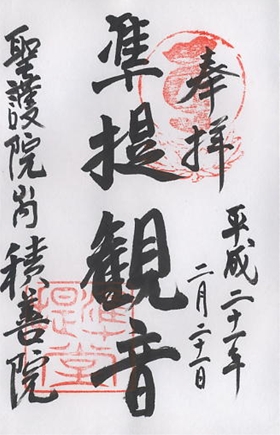 奉拝
平成二十一年
二月二十二日
準提観音
聖護院内 積善院
準提堂